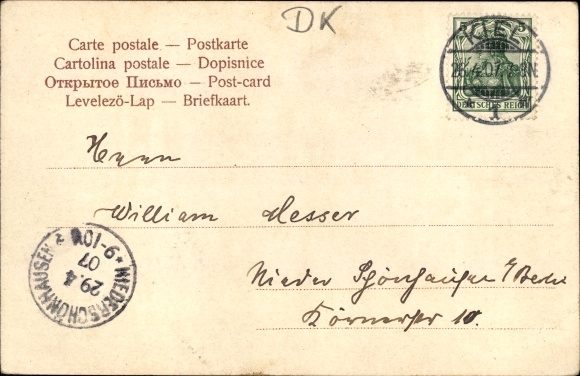 DK
Carte postale — Postkarte
Cartolina postale — Dopisnice
Открытое Письмо — Post-card
Levelezö-Lap — Briefkaart.
5 5
KIEL
07
DEUTSCHES REICH
1
Herrn
William Messer
Nieder Schönhausen b/Berlin
Körnerstr 10.
NIEDERSCHÖNHAUSEN
29.4
07
9-10V